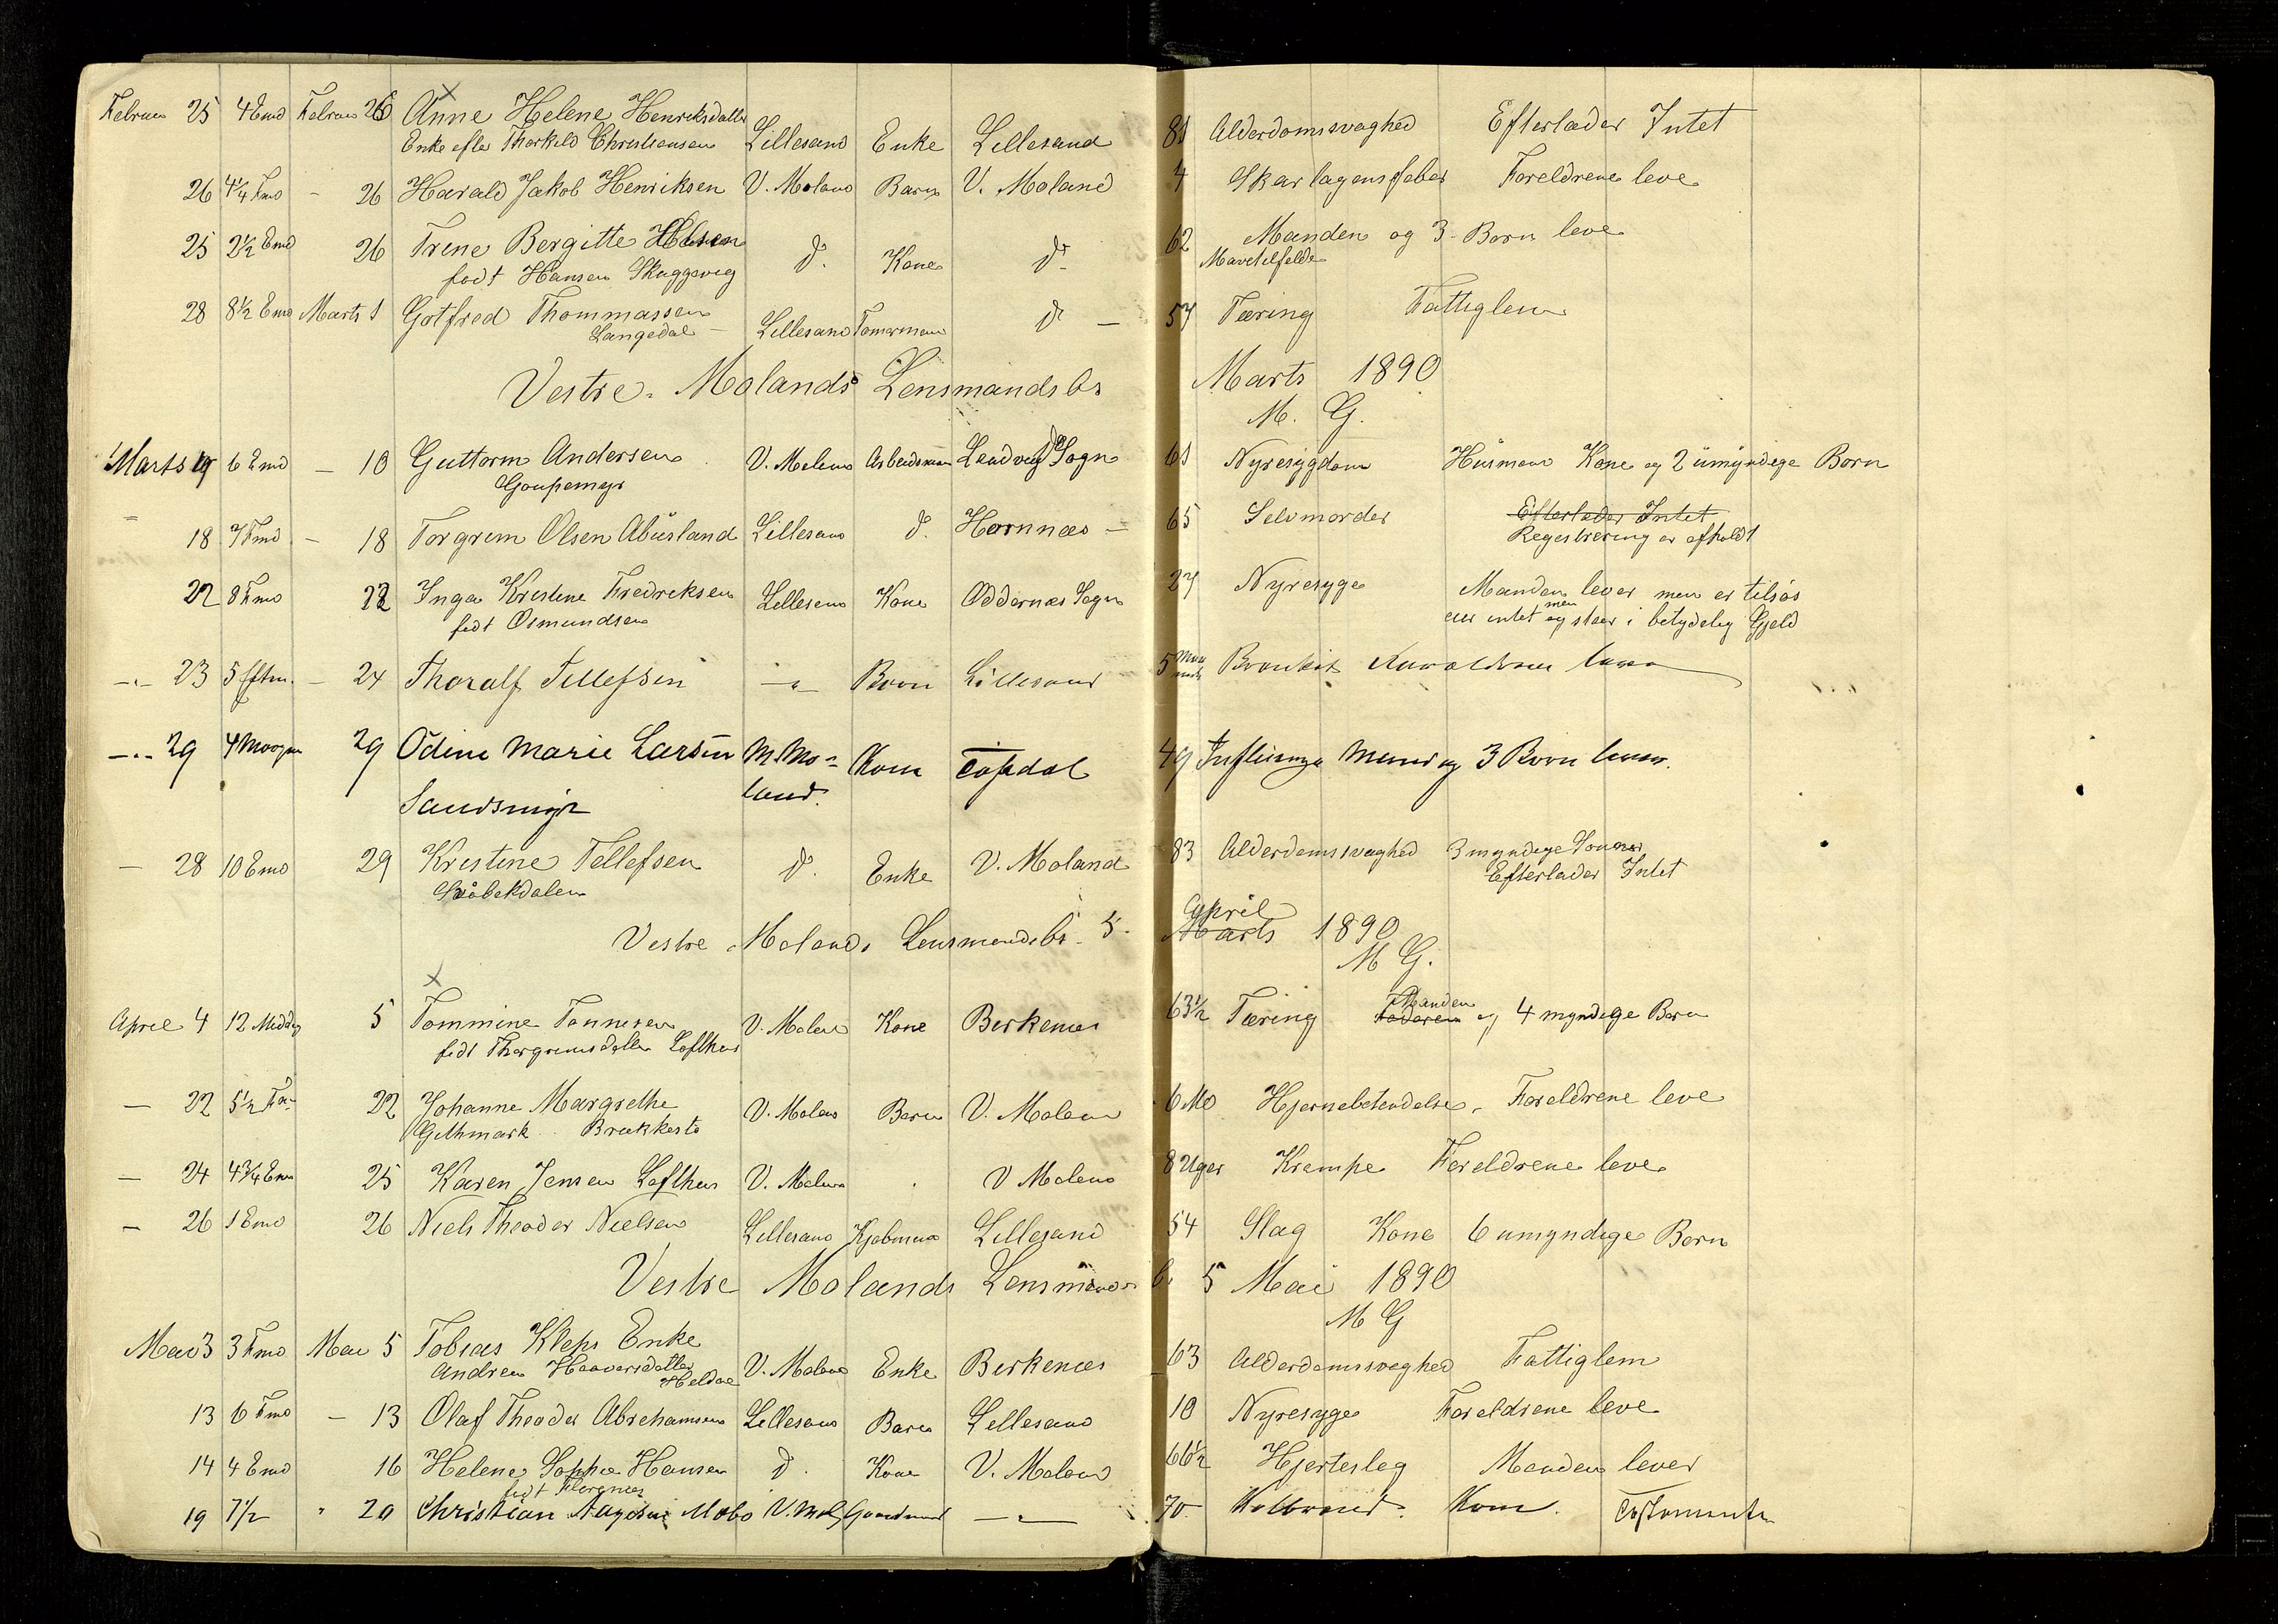 Februar 25 4 Emd Februar 26 Anne Helene Henriksdatter
Enke efter Thorkild Christiansen Lillesand Enke Lillesand 81 Alderdomssvaghed Efterlader Intet
26 4¼ Fmd - 26 Harald Jakob Henriksen V. Moland Barn V. Moland 4 Skarlagensfeber Foreldrene leve
25 2½ Emd 26 Trine Bergitte Olsen do Kone do 62 Manden og 3 Born leve
født Hansen Skaggevig Mavetilfelde
28 8½ Emd Marts 1 Gotfred Thommassen
Langedal - Lillesand Tomermand do - 57 Tæring Fattiglem
Vestre Molands Lensmandsbs Marts 1890
M. G.
Marts 9 6 Emd - 10 Guttorm Andersen V. Moland Arbeidsmand Landvig Sogn 61 Nyresygdom Husmand Kone og 2 umyndige Born
Goupemyr
18 7 Fmd - 18 Torgrim Olsen Abusland Lillesand do Hornnæs - 65 Selvmorder Efterlader Intet
Registrering er afholdt
22 8 Fmd 22 Inga Kristine Fredriksen Lillesand Kone Oddernæs Sogn 27 Nyresyge Manden lever men er tilsøs
født Osmundsen eier intet men og staar i betydelig Gjeld
-"- 23 5 Eftm. - 24 Thoralf Tellefsen -"- Barn Lillesand 5 Bronkit leve
-"- 29 4 Morgen 29 Odine Marie Larsen V. Mo-
land. Kone Topdal 49 Influensa Mand og 3 Born leve.
Sandsmyr
- 28 10 Emd 29 Kristine Tellefsen do Enke V. Moland 83 Alderdomssvaghed 3 myndige Sonner
Efterlader Intet
Vestre Molands Lensmandsbs 5. April Marts 1890
M G.
April 4 12 Middag 5 Tommine Tønnesen V. Moland Kone Birkenæs 63½ Tæring Manden Faderen og 4 myndige Born
født Thorgrimsdatter Lofthus
- 22 5½ Fm 22 Johanne Margrethe
Githmark Brækkestø V. Moland Barn V. Moland 6 Mo Hjernebetendelse - Foreldrene leve
- 24 4¾ Em 25 Karen Jensen Lofthus V. Moland V Moland 8 Uger Krampe Foreldrene leve
- 26 1 Emd 26 Niels Theodor Nielsen Lillesand Kjøbmand Lillesand 54 Slag Kone 6 umyndige Born
Vestre Molands Lensmands b. 5 Mai 1890
M G
Mai 3 3 Fmd Mai 5 Tobias Kleps Enke
Andrea Haavorsdatter
Heldal V. Moland Enke Birkenæs 63 Alderdomssvaghed Fattiglem
13 6 Fmd - 13 Olaf Theodor Abrahamsen Lillesand Barn Lillesand 10 Nyresyge Foreldrene leve
14 4 Emd 16 Helene Sophie Hansen do Kone V. Moland 66½ Hjerteslag Manden lever
født
19 7½ " 20 Christian Aagesen Møbo V. Mol. Gaardmand -"- 70 Koldbrand. Kone. Testamente